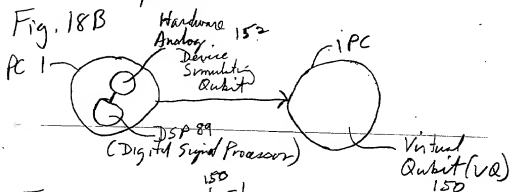 Fig. 18B
Hardware
Analog 152
Device
Simulating
Qubit
PC 1
iPC
DSP 89
(Digital Signal Processor)
Virtual
Qubit (VQ)
150
150